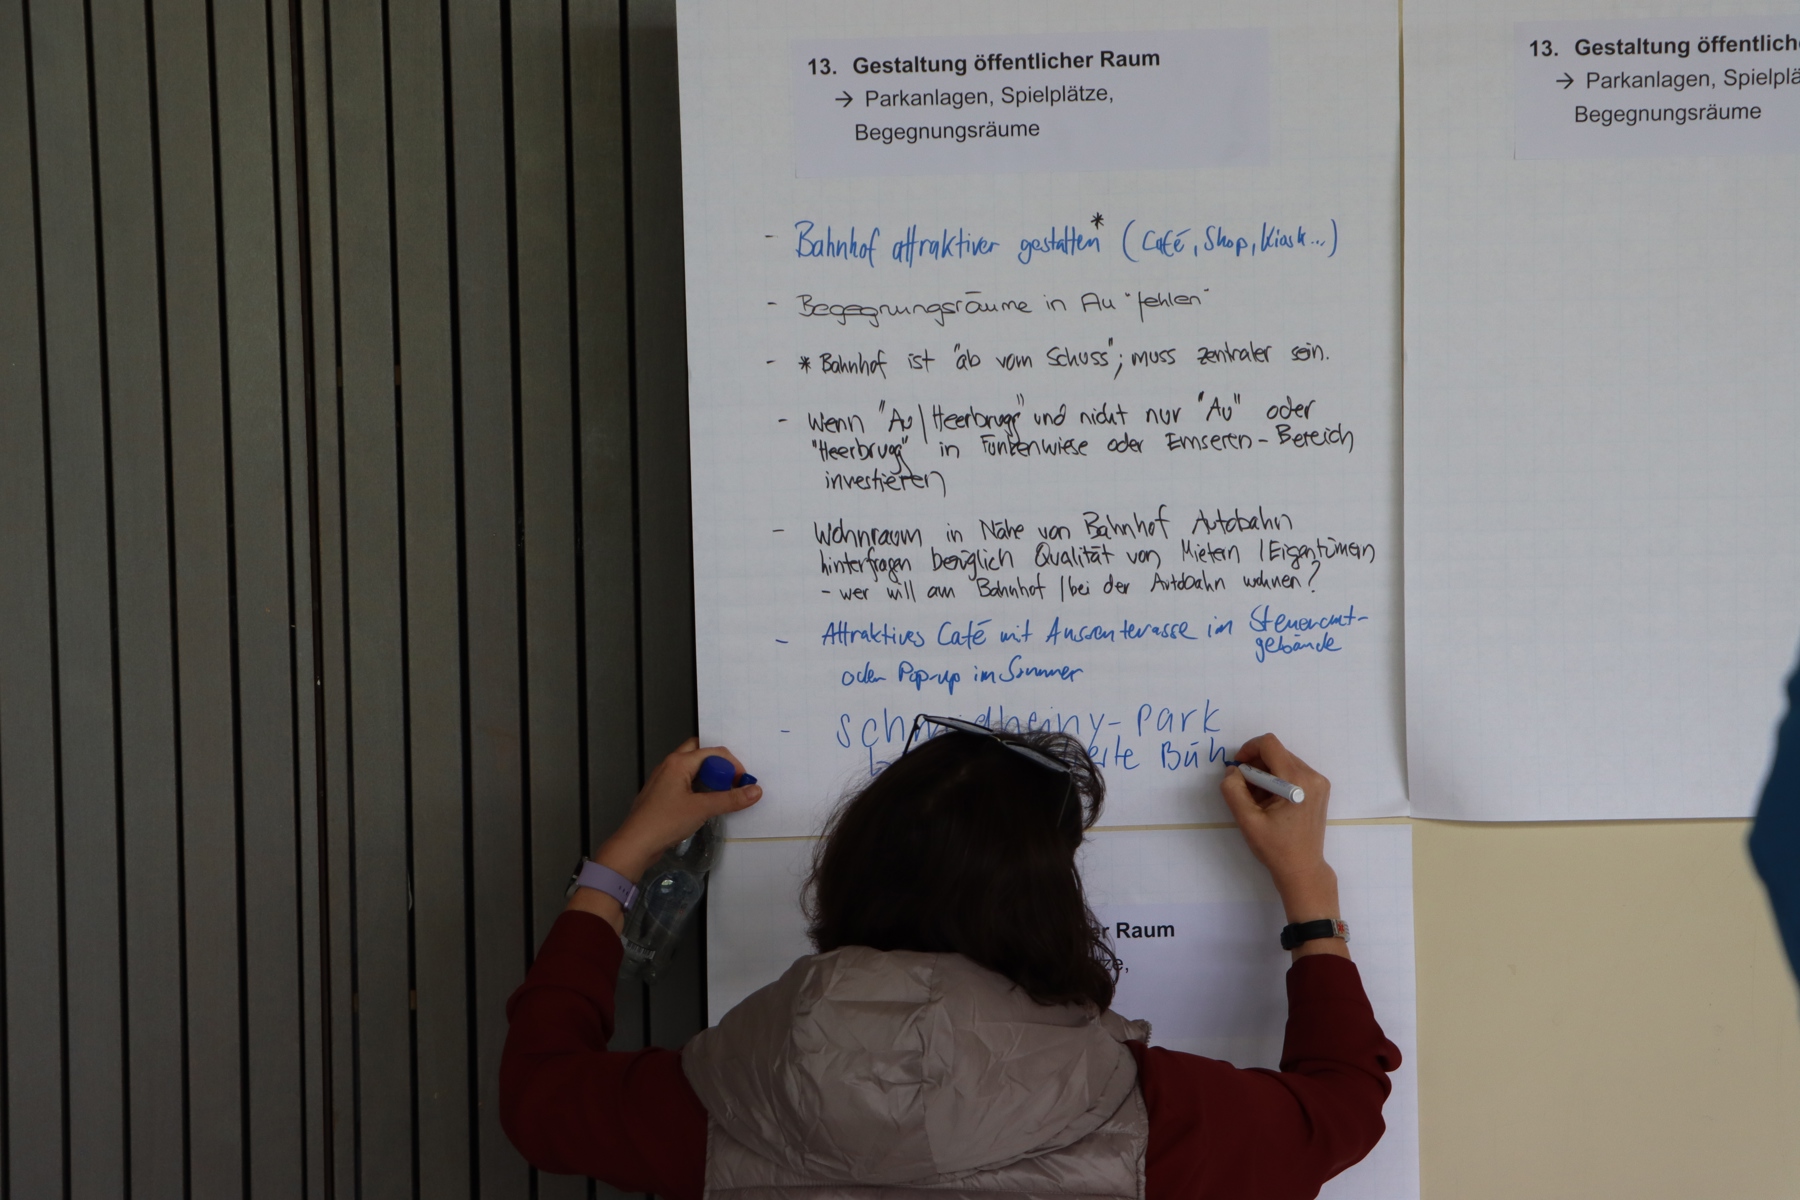 13. Gestaltung öffentlicher Raum
→ Parkanlagen, Spielplätze,
Begegnungsräume
- Bahnhof attraktiver gestalten* (Café, Shop, Kiosk...)
- Begegnungsräume in Au "fehlen"
- * Bahnhof ist "ab vom Schuss"; muss zentraler sein.
- Wenn "Au/Heerbrugg" und nicht nur "Au" oder
"Heerbrugg" in Funkenwiese oder Emseren-Bereich
investieren
- Wohnraum in Nähe von Bahnhof Autobahn
hinterfragen bezüglich Qualität von Mietern / Eigentümern
- wer will am Bahnhof / bei der Autobahn wohnen?
- Attraktives Café mit Aussenterasse im Steueramt-
gebäude
oder Pop-up im Sommer
- Schmidheiny-Park
Büh
13. Gestaltung öffentlich
→ Parkanlagen, Spielplä
Begegnungsräume
er Raum
ze,